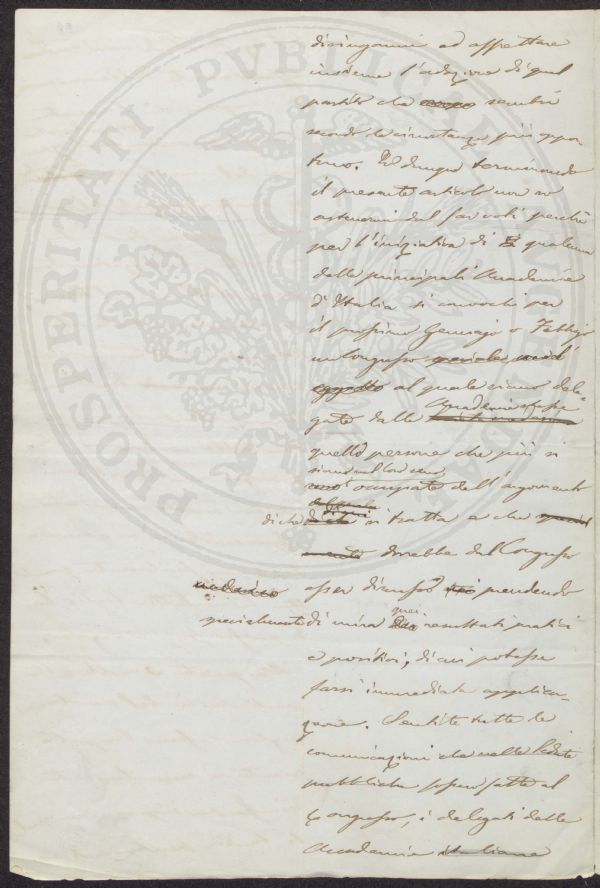 PROSPERITATI PVBLICAE
disinganni ad affrettare
insieme l'adozione di quel
partito che sembri
secondo le circostanze più oppor-
tuno. Ed dunque terminando
il presente articolo non so
astenermi dal far voti perchè
per l'iniziativa di qualcuna
delle principali Accademie
d'Italia si convochi per
il prossimo Gennajo o Febbrajo
un Congresso
oggetto al quale siano dele-
gate dalle Accademie
quelle persone che più si
occupate dell'argomento
di che si tratta e che
dovrebbe dal Congresso
esser discusso prendendo
specialmente di mira quei resultati pratici
e positivi, di cui potesse
farsi immediata applica-
zione. Sentite tutte le
comunicazioni che nelle sedute
pubbliche fosser fatte al
Congresso, i delegati delle
Accademie italiane